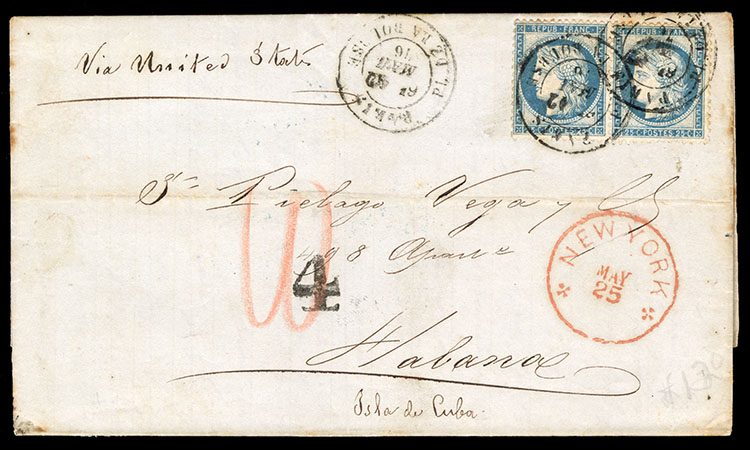 Via United States
PL. DE LA BOURSE
PARIS
REPUB · FRANC ·
REPUB · FRANC ·
25 C · POSTES · 25 C
25 C · POSTES · 25 C
Sres Pielago Vega y Ca
498 Apartado
4
NEW YORK
MAY
25
Habana
Isla de Cuba.